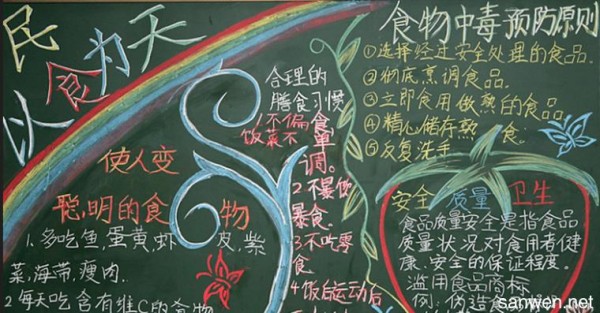 民以食为天
使人变
聪明的食物
1.多吃鱼,蛋黄,虾皮,紫
菜,海带,瘦肉..
2每天吃含有维C的食物
合理的
膳食习惯
1不偏食
饭菜不单
调。
2不暴饮
暴食.
3不吃零
食
4饭后运动后
食物中毒预防原则
①选择经过安全处理的食品.
②彻底烹调食品.
③立即食用做熟的食品
④精心储存熟食.
⑤反复洗手.
安全 质量 卫生
食品质量安全是指食品
质量状况对食用者健
康、安全的保证程度。
滥用食品商标
例:伪造食
sanwen.net